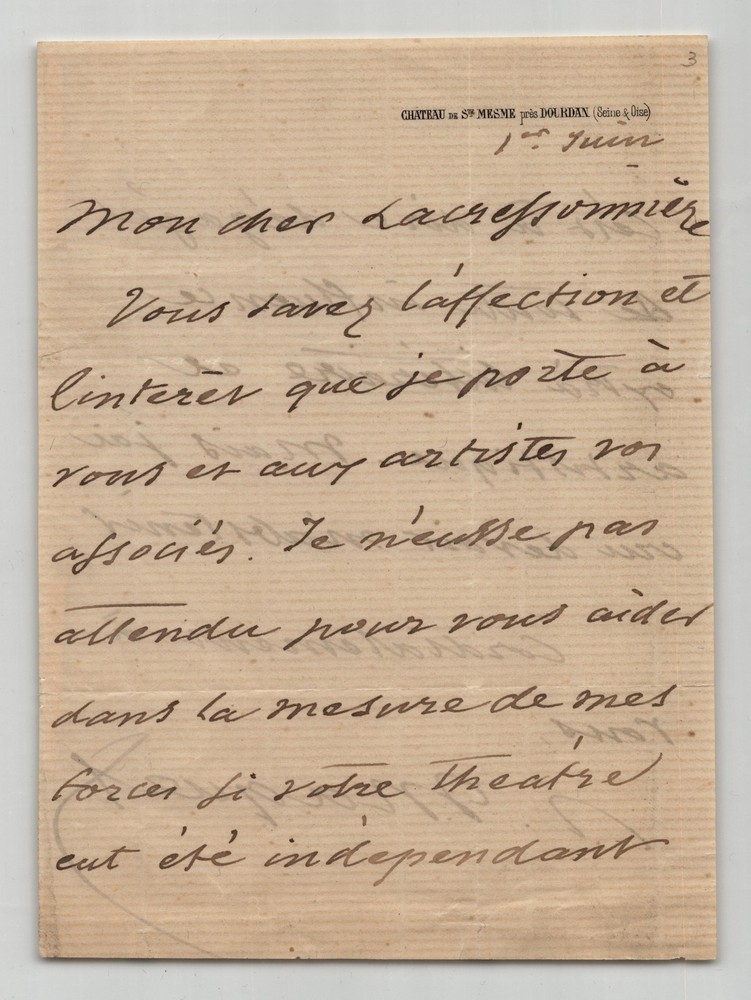 3
CHÂTEAU DE STE MESME près DOURDAN (Seine & Oise)
1er Juin
Mon cher Lacressonnière
Vous savez l'affection et
l'intérêt que je porte à
vous et aux artistes vos
associés. Je n'eusse pas
attendu pour vous aider
dans la mesure de mes
forces si votre théatre
eut été indépendant